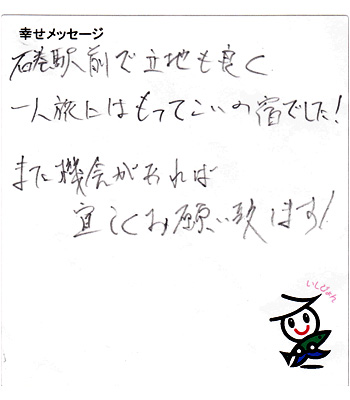 幸せメッセージ
石巻駅前で立地も良く
一人旅にはもってこいの宿でした！
また機会があれば
宜しくお願い致します！
いしぴょん